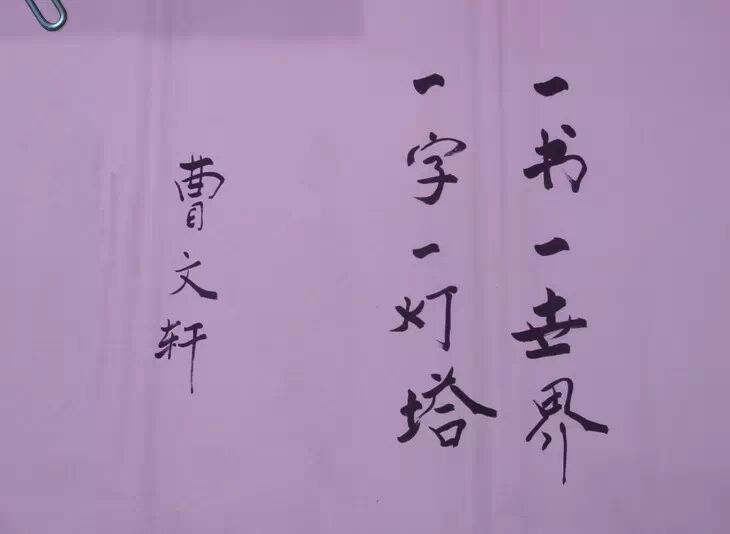 一书一世界
一字一灯塔
曹文轩